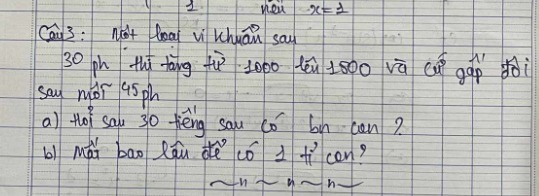 1 nếu x=1
Câu 3: Một loại vi khuẩn sau
30 ph thì tăng từ 1000 lên 1500 và cứ gấp đôi
sau mỗi 45ph
a) Hỏi sau 30 tiếng sau có bn con?
b) Mất bao lâu để có 1 tỉ con?